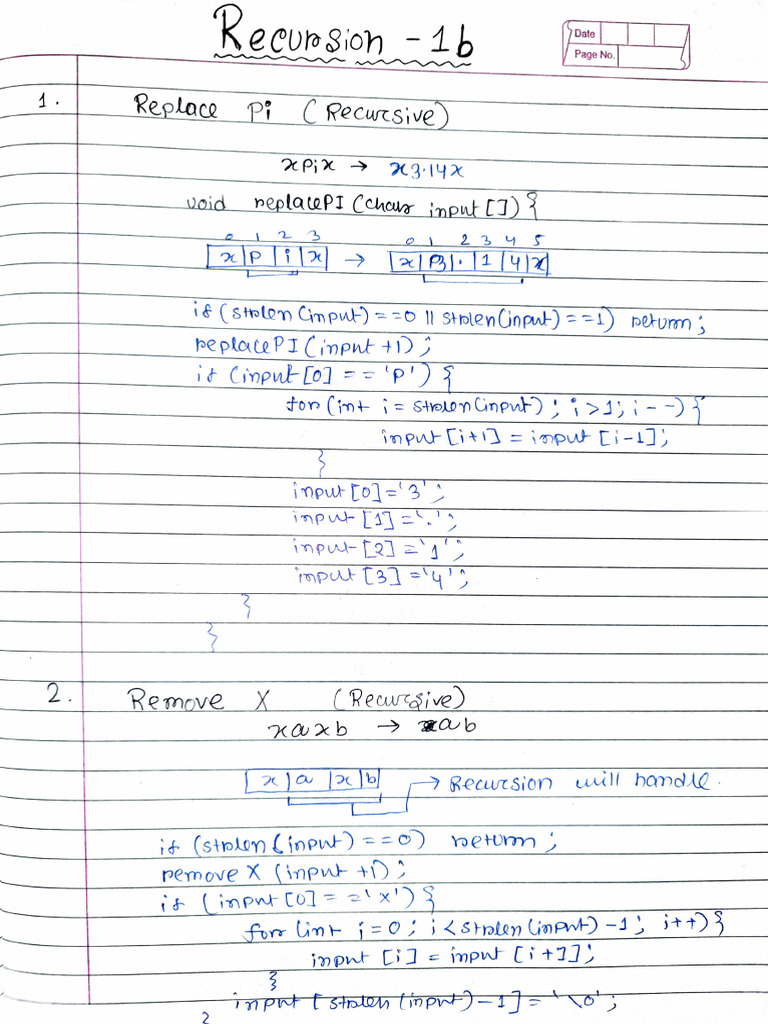 Recursion - 1b
Date
Page No.
1. Replace Pi (Recursive)
xpix → x3.14x
void replacePI (char input []) {
0 1 2 3 0 1 2 3 4 5
x p i x → x 3 . 1 4 x
if (strlen(input) ==0 || strlen(input) ==1) return;
replacePI (input +1);
if (input [0] == 'p') {
for (int i = strlen(input); i>1; i--) {
input [i+1] = input [i-1];
}
input [0] = '3';
input [1] = '.';
input [2] = '1';
input [3] = '4';
}
}
2. Remove X (Recursive)
xaxb → ab
x a x b → Recursion will handle.
if (strlen (input) ==0) return;
remove X (input +1);
if (input [0] == 'x') {
for (int i=0; i<strlen(input) -1; i++) {
input [i] = input [i+1];
}
input [strlen (input) -1] = '\0';
}